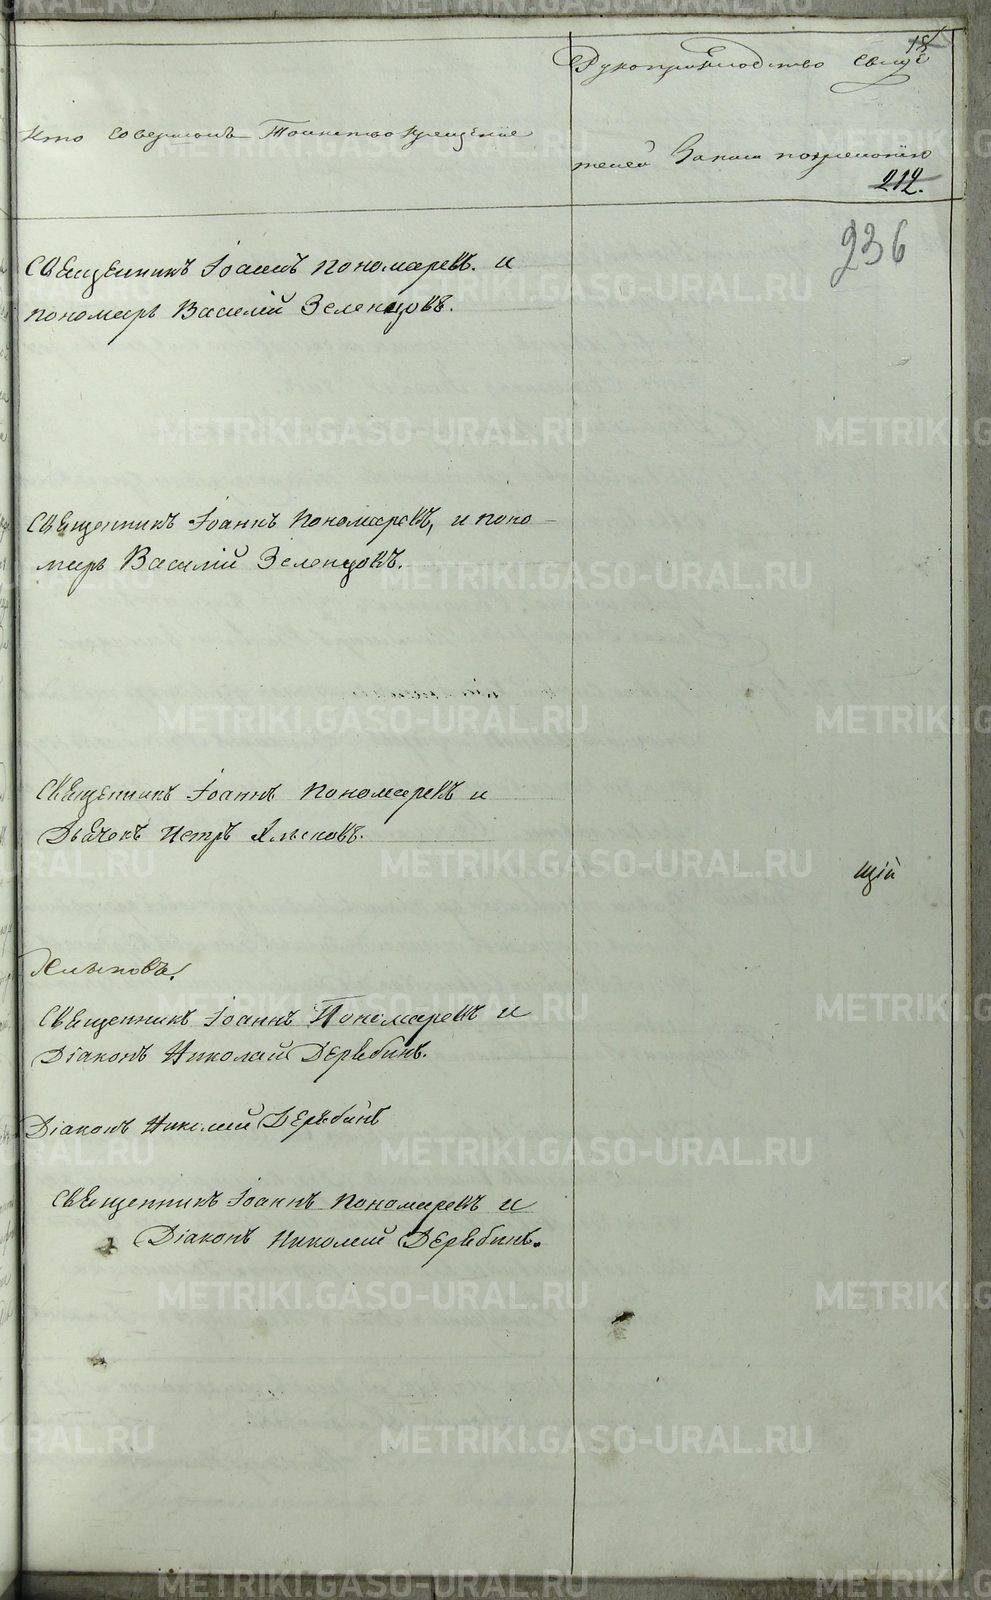 18
Кто совершалъ Таинство крещенiе
Рукоприкладство свидѣ
телей записи по желанiю
212.
236
Священникъ Iоаннъ Пономаревъ. и
пономарь Василiй Зеленцовъ.
Священникъ Iоаннъ Пономаревъ, и поно-
марь Василiй Зеленцовъ.
Священникъ Iоаннъ Пономаревъ и
Дьячекъ Петръ Хлыновъ.
щiй
Хлыновъ.
Священникъ Iоаннъ Пономаревъ и
Дiаконъ Николай Дерябинъ.
Дiаконъ Николай Дерябинъ
Священникъ Iоаннъ Пономаревъ и
Дiаконъ Николай Дерябинъ.
METRIKI.GASO-URAL.RU